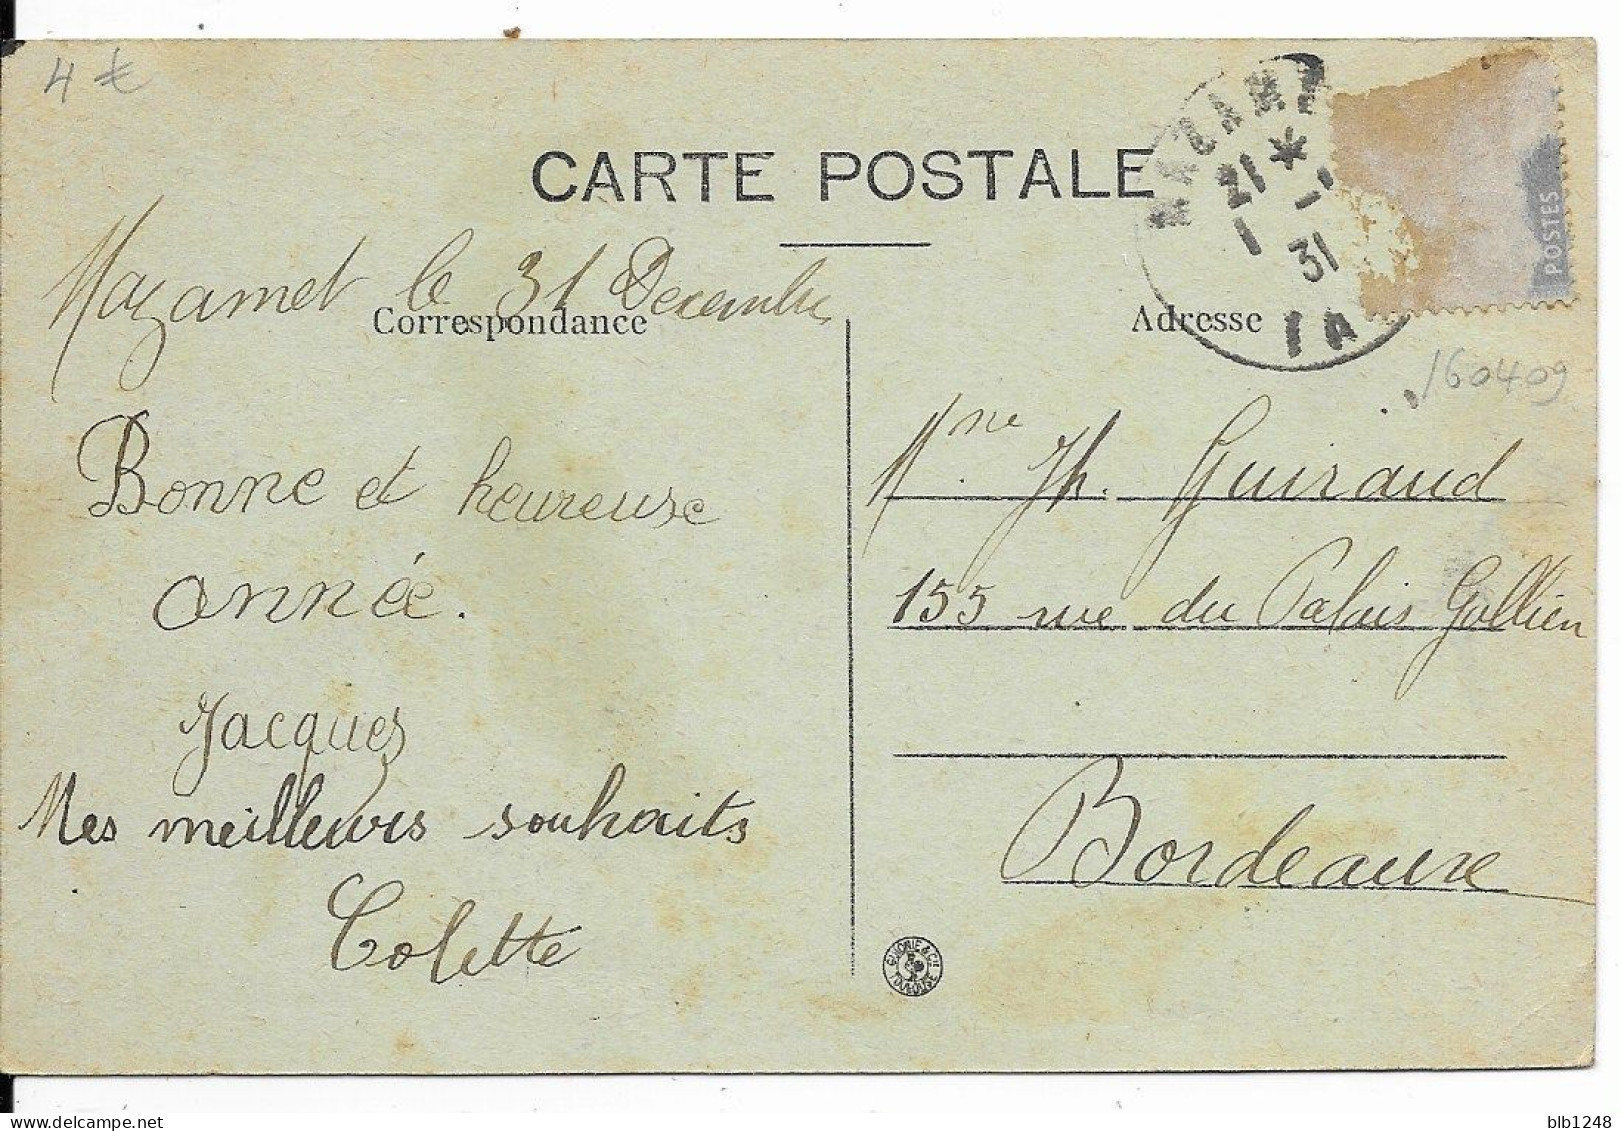 4 €
CARTE POSTALE
MAZAM
21 * 1 - 1 31
TA
POSTES
Mazamet le 31 Decembre
Correspondance
Adresse
160409
Mme Jh. Guiraud
155 rue du Palais Gallien
Bordeaux
Bonne et heureuse
année.
Jacques
Mes meilleurs souhaits
Colette
TOULOUSE
blb1248